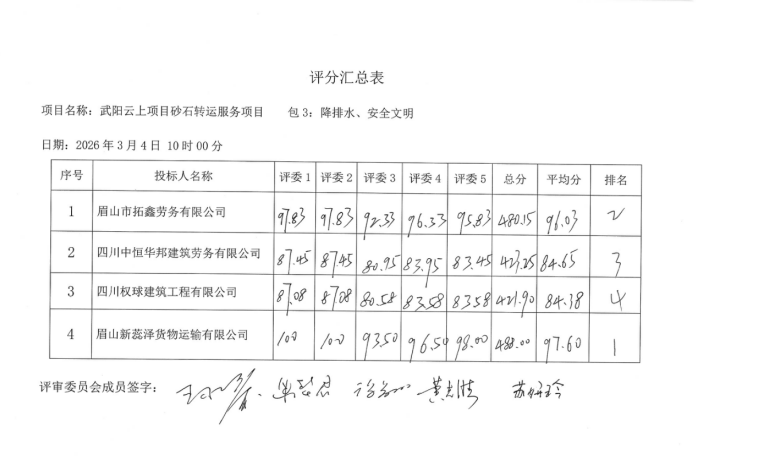 评分汇总表
项目名称：武阳云上项目砂石转运服务项目 包3：降排水、安全文明
日期：2026年3月4日 10时00分
序号 投标人名称 评委1 评委2 评委3 评委4 评委5 总分 平均分 排名
1 眉山市拓鑫劳务有限公司 97.83 97.83 92.33 96.33 95.83 480.15 96.03 2
2 四川中恒华邦建筑劳务有限公司 87.45 87.45 80.95 83.95 83.45 423.25 84.65 3
3 四川权球建筑工程有限公司 87.08 87.08 80.58 83.58 83.58 421.90 84.38 4
4 眉山新蕊泽货物运输有限公司 100 100 93.50 96.50 98.00 488.00 97.60 1
评审委员会成员签字：